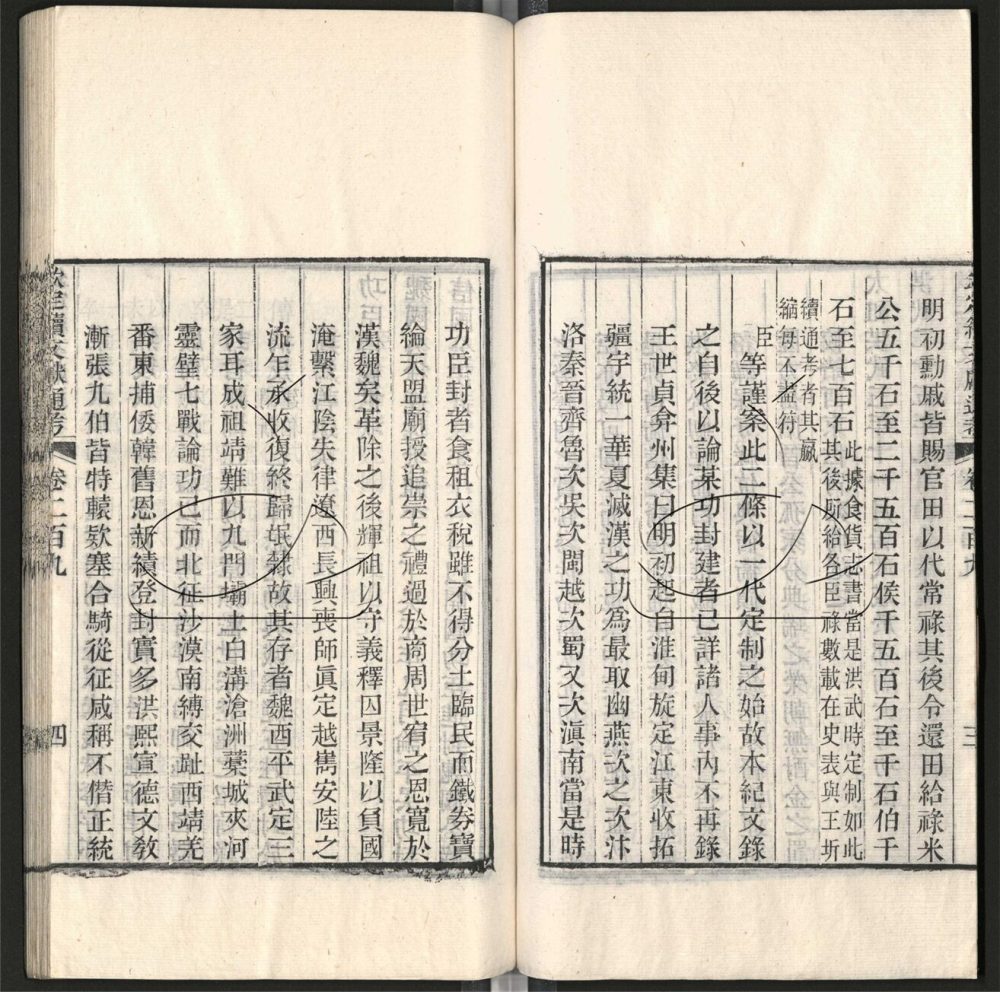 明初勳戚皆賜官田以代常祿其後令還田給祿米
公五千石至二千五百石侯千五百石至千石伯千
石至七百石此據食貨志書當是洪武時定制如此
其後所給各臣祿數載在史表與王圻
續通考者其贏
縮每不盡符
臣等謹案此二條以一代定制之始故本紀文錄
之自後以論某功封建者已詳諸人事內不再錄
王世貞弇州集曰明初起自淮甸旋定江東收拓
疆宇統一華夏滅漢之功為最取幽燕次之次汴
洛秦晉齊魯次吳次閩越次蜀又次滇南當是時
三
功臣封者食租衣稅雖不得分土臨民而鐵券寶
綸天盟廟授追崇之禮過於商周世宥之恩寬於
漢魏矣革除之後輝祖以守義釋囚景隆以負國
淹繫江陰失律遼西長興喪師眞定越雋安陸之
流乍承收復終歸氓隸故其存者魏西平武定三
家耳成祖靖難以九門壩上白溝滄洲藁城夾河
靈璧七戰論功已而北征沙漠南縛交趾西靖羌
番東捕倭韓舊恩新績登封實多洪熙宣德文敎
漸張九伯皆特轅欵塞合騎從征咸稱不僭正統
欽定續文獻通考
卷二百九
四